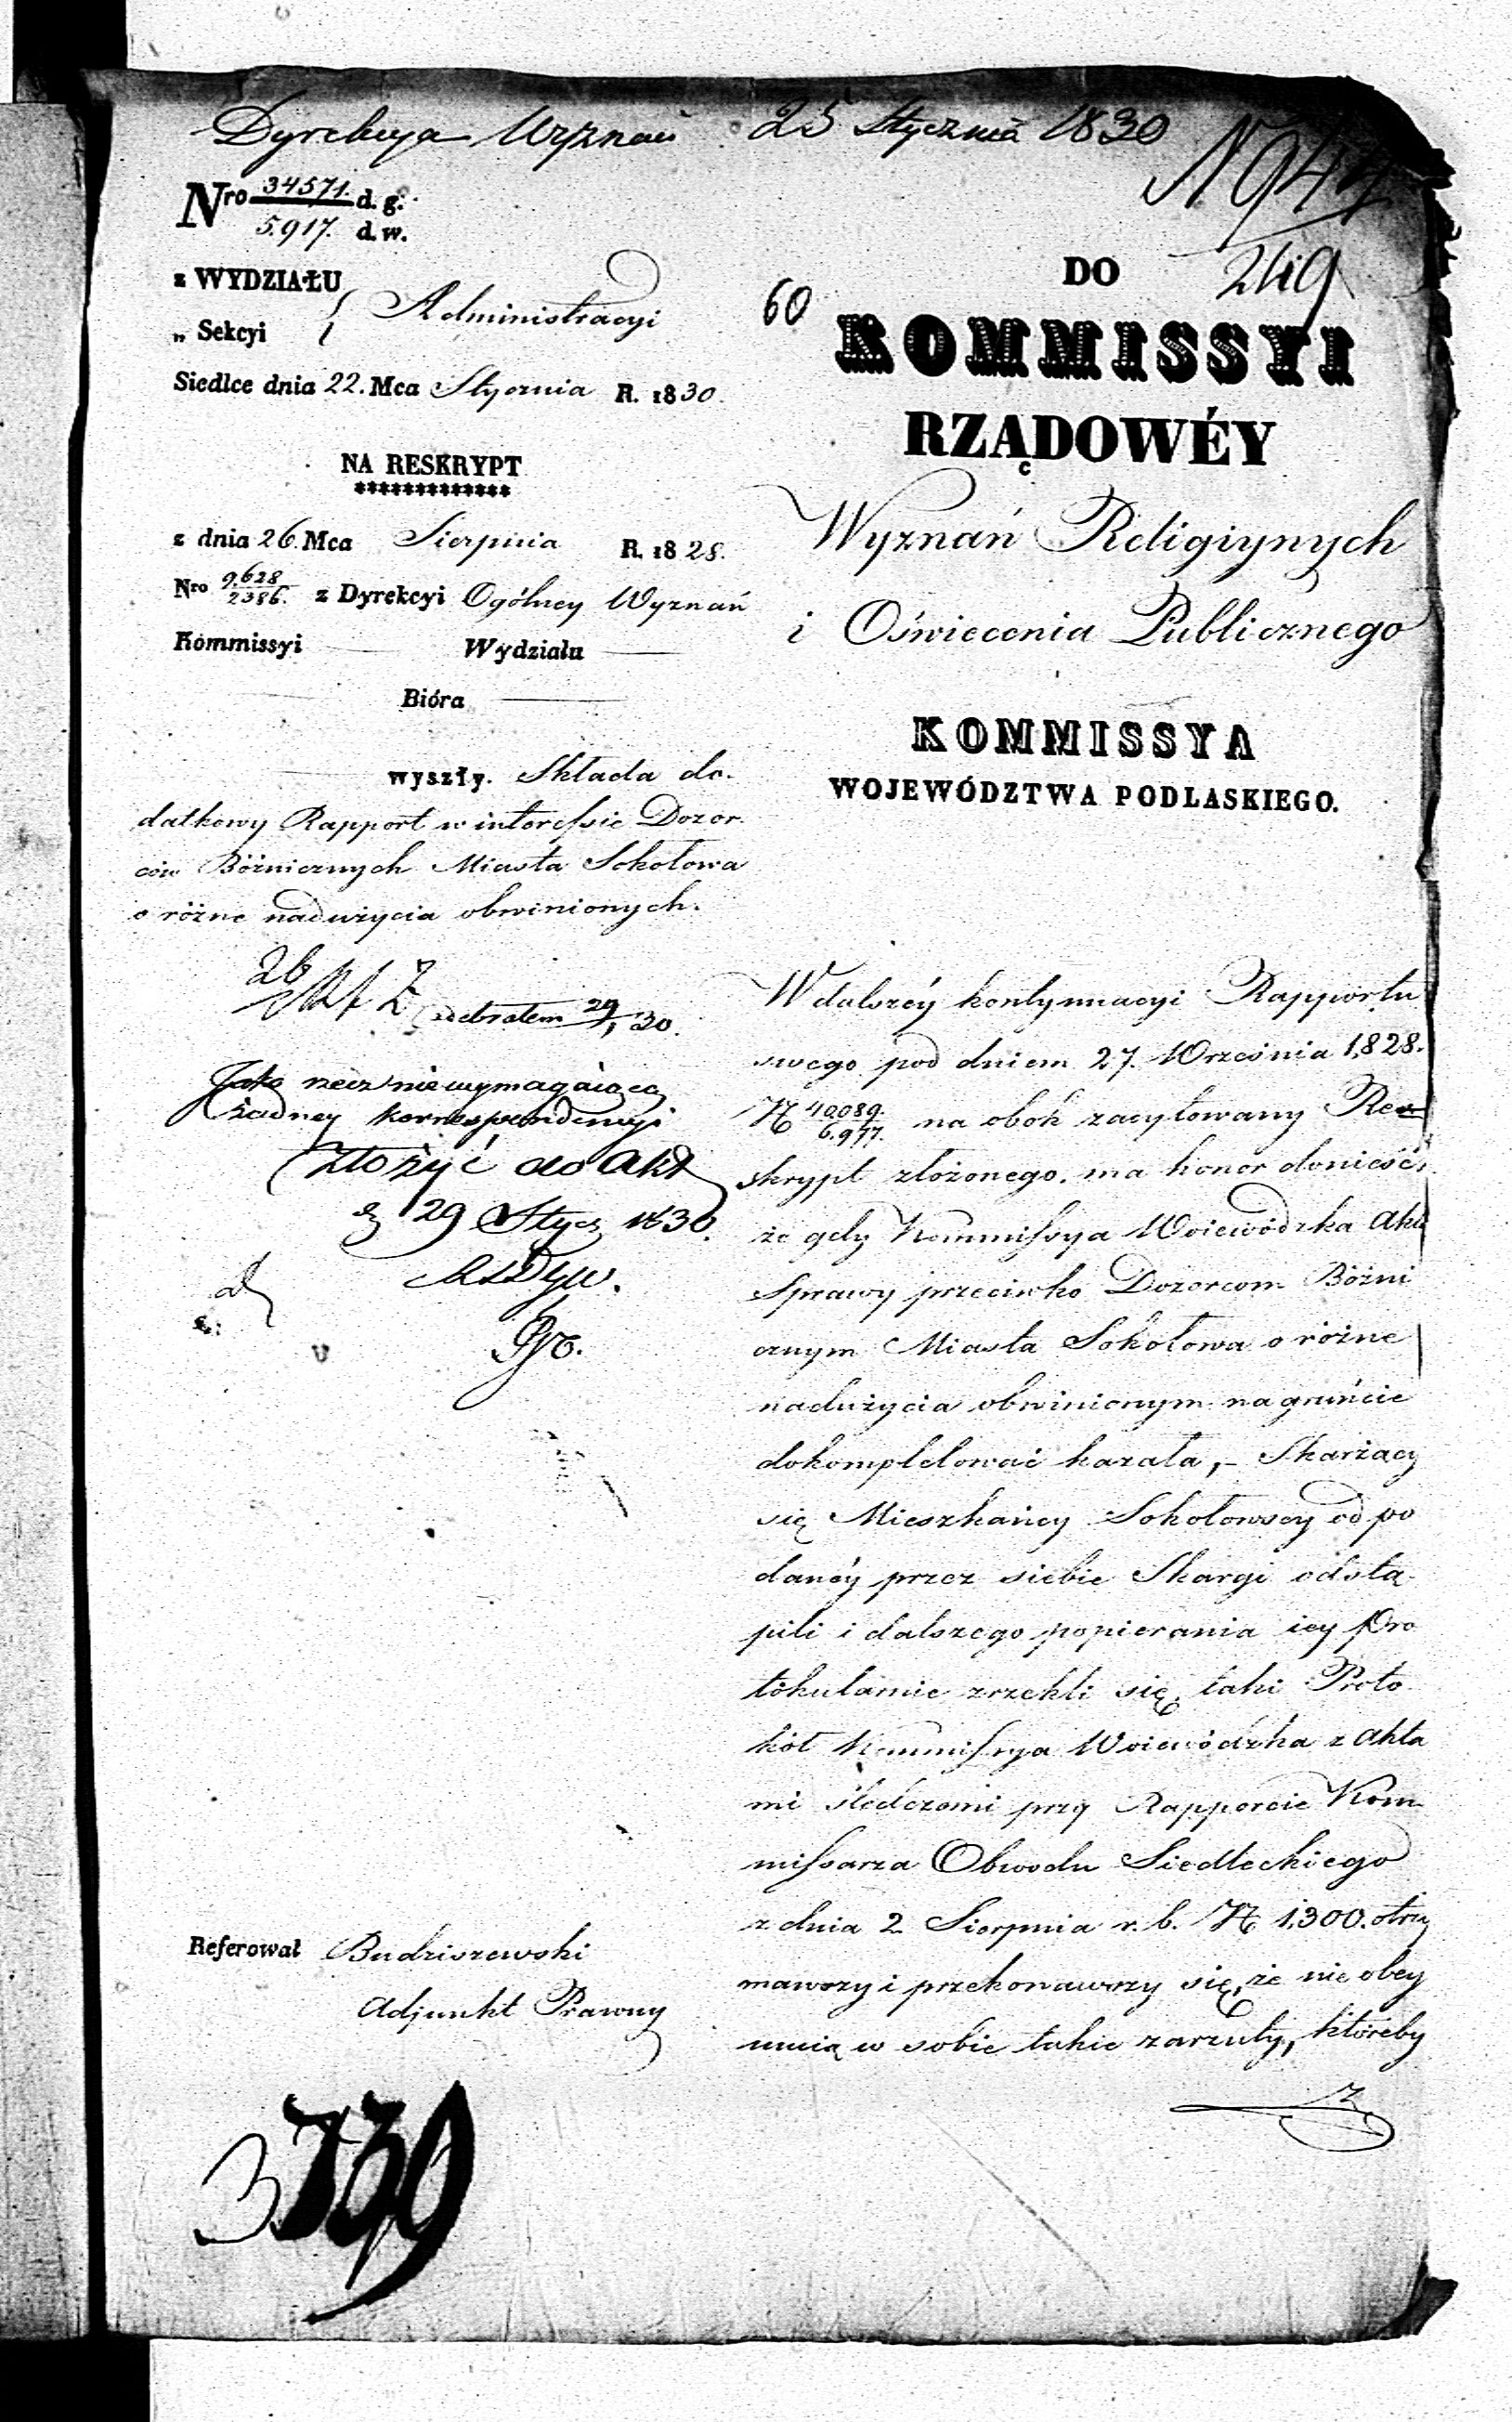 Dyrekcya Wyznań 25 Stycznia 1830
N 944
249
Nro 34571. d. g.
5.917. d. w.
z WYDZIAŁU
„ Sekcyi
Administracyi
Siedlce dnia 22. Mca Stycznia R. 1830.
NA RESKRYPT
z dnia 26. Mca Sierpnia R. 1828.
Nro 9.628
2386. z Dyrekcyi Ogólney Wyznań
Kommissyi Wydziału
Bióra
wyszły. Składa do-
datkowy Rapport w interessie Dozor-
ców Bóżnicznych Miasta Sokołowa
o różne nadużycia obwinionych.
26
odebrałem 29/1 30.
Jako rzecz niewymagaiącą
żadney korrespondencyi
złożyć do akt
d 29 Stycz 1830.
Referował Budziszewski
Adjunkt Prawny
3739
60
DO
KOMMISSYI
RZĄDOWÉY
Wyznań Religiynych
i Oświecenia Publicznego
KOMMISSYA
WOJEWÓDZTWA PODLASKIEGO.
W dalszéy kontynuacyi Rapportu
swego pod dniem 27. Września 1,828.
N 40,089.
6.977. na obok zacytowany Re-
skrypt złożonego, ma honor donieść,
że gdy Kommissya Woiewódzka Akta
Sprawy przeciwko Dozorcom Bóżni
cznym Miasta Sokołowa o różne
nadużycia obwinionym na gruńcie
dokompletować kazała, – Skarżący
się Mieszkańcy Sokołowscy od po
danéy przez siebie Skargi odstą-
pili i dalszego popierania iey Pro
tokularnie zrzekli się, taki Proto-
kół Kommissya Woiewódzka z Akta
mi śledczemi przy Rapporcie Kom-
missarza Obwodu Siedleckiego
z dnia 2 Sierpnia r. b. N 1,300. otrzy
mawszy i przekonawszy się, że nie obey
muią w sobie takie zarzuty, któreby